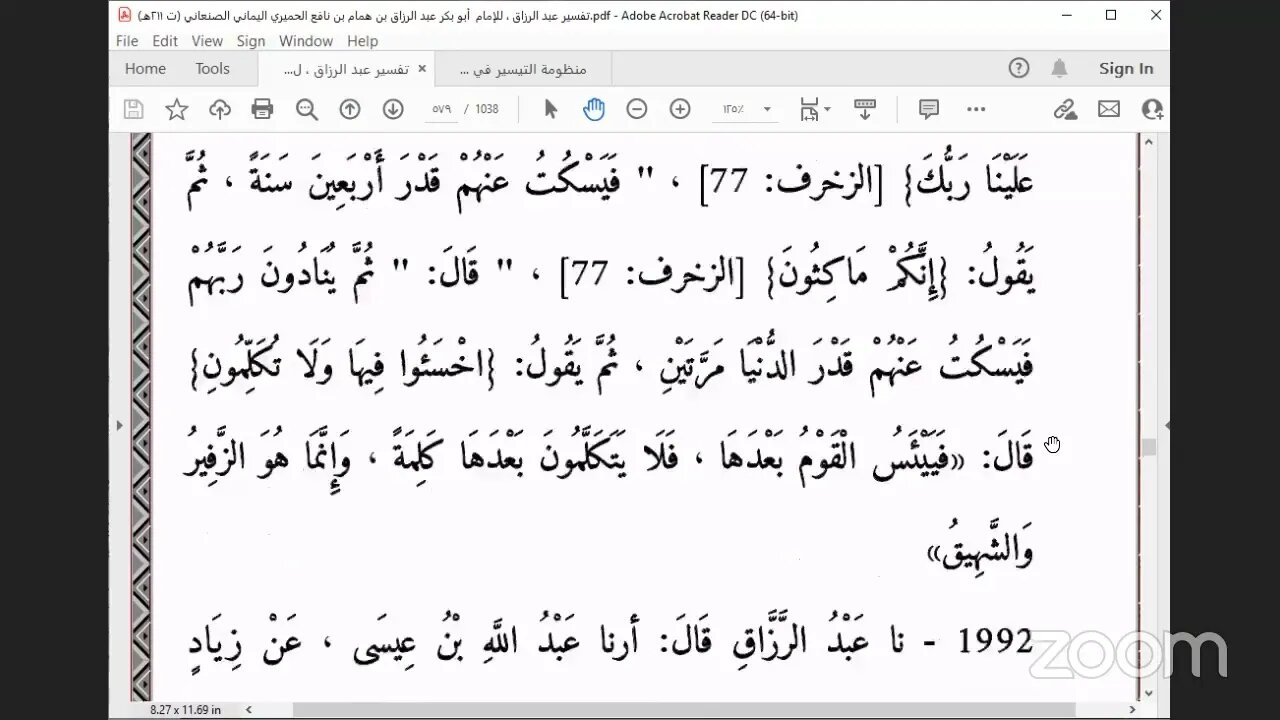 تفسير عبد الرزاق ، للإمام أبو بكر عبد الرزاق بن همام بن نافع الحميري اليماني الصنعاني (ت ٢١١هـ).pdf - Adobe Acrobat Reader DC (64-bit)
File Edit View Window Sign Help
Home Tools تفسير عبد الرزاق ، ل... × منظومة التيسير في ... Sign In
٥٧٩ / 1038 ١٢٥٪
عَلَيْنَا رَبُّكَ} [الزخرف: 77] ، " فَيَسْكُتُ عَنْهُمْ قَدْرَ أَرْبَعِينَ سَنَةً ، ثُمَّ
يَقُولُ: {إِنَّكُمْ مَاكِثُونَ} [الزخرف: 77] ، " قَالَ: " ثُمَّ يُنَادُونَ رَبَّهُمْ
فَيَسْكُتُ عَنْهُمْ قَدْرَ الدُّنْيَا مَرَّتَيْنِ ، ثُمَّ يَقُولُ: {اخْسَئُوا فِيهَا وَلَا تُكَلِّمُونِ}
قَالَ: «فَيَيْئَسُ الْقَوْمُ بَعْدَهَا ، فَلَا يَتَكَلَّمُونَ بَعْدَهَا كَلِمَةً ، وَإِنَّمَا هُوَ الزَّفِيرُ
وَالشَّهِيقُ»
1992 - نا عَبْدُ الرَّزَّاقِ قَالَ: أرنا عَبْدُ اللَّهِ بْنُ عِيسَى ، عَنْ زِيَادٍ
zoom
8.27 x 11.69 in